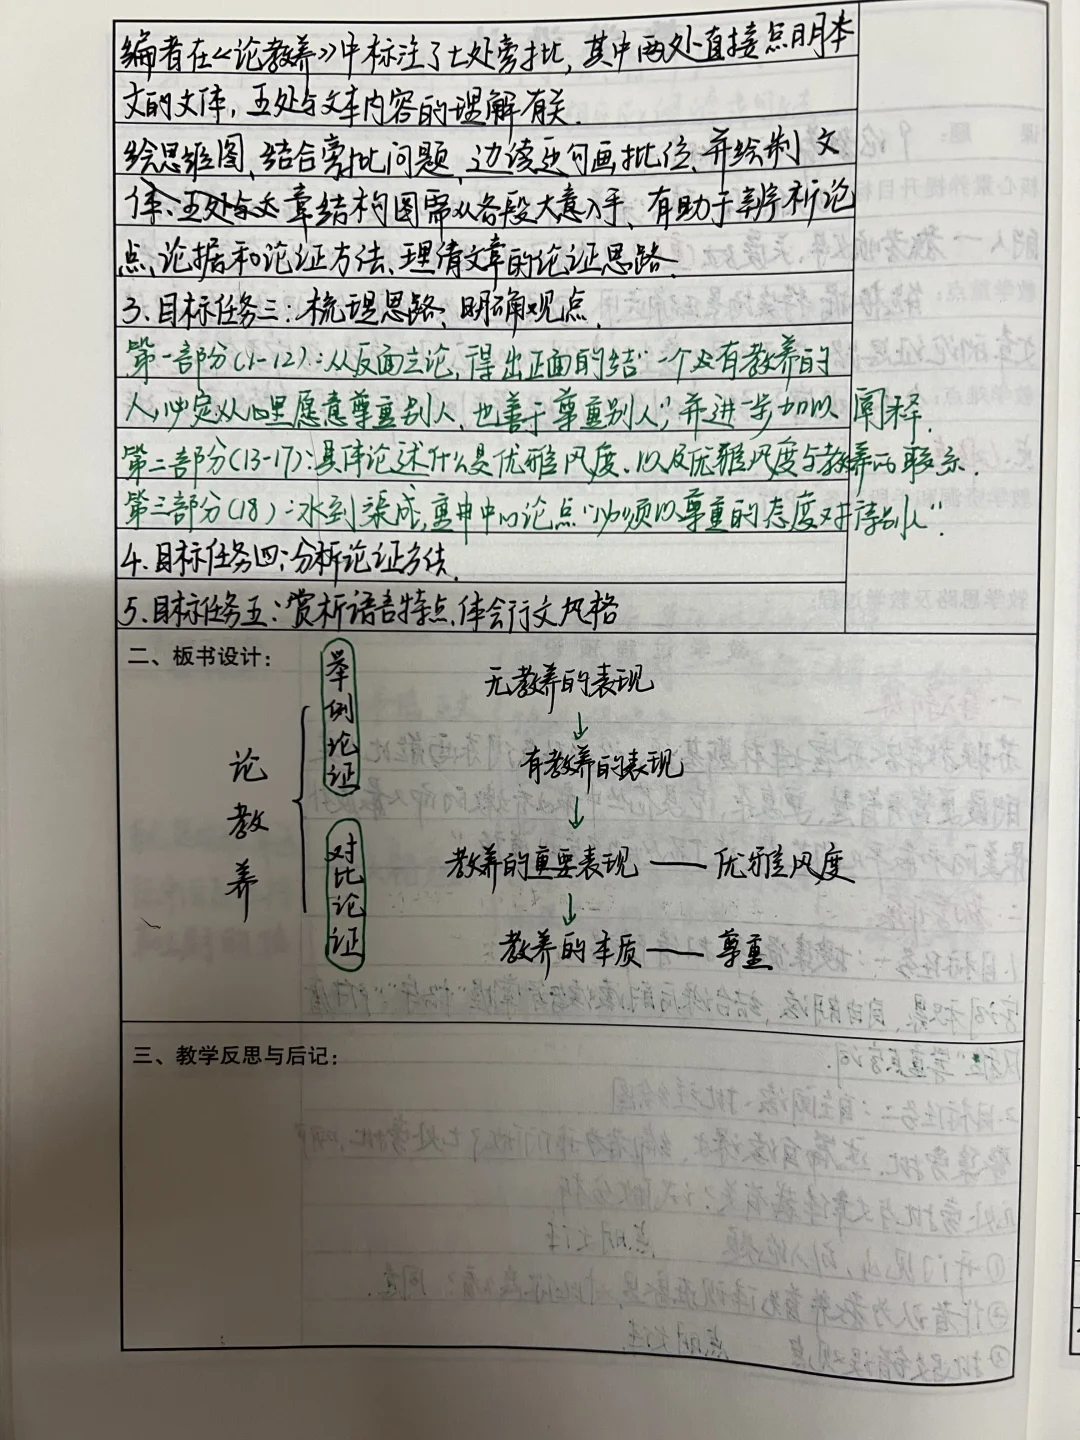 编者在《论教养》中标注了七处旁批，其中两处直接点明本
文的文体，五处与文本内容的理解有关.
绘思维图，结合旁批问题，边读边勾画批注，并绘制文
体、五处与文章结构图需从各段大意入手，有助于辨析论
点、论据和论证方法、理清文章的论证思路.
3.目标任务三：梳理思路，明确观点.
第一部分(1-12)：从反面立论，得出正面的结"一个具有教养的
人，必定从心里愿意尊重别人，也善于尊重别人"，并进一步加以阐释.
第二部分(13-17)：具体论述什么是优雅风度、以及优雅风度与教养的联系.
第三部分(18)：水到渠成，重申中心论点"必须以尊重的态度对待别人".
4.目标任务四：分析论证方法.
5.目标任务五：赏析语言特点，体会行文风格
二、板书设计：
论教养
举例论证
对比论证
无教养的表现
↓
有教养的表现
↓
教养的重要表现——优雅风度
↓
教养的本质——尊重
三、教学反思与后记：